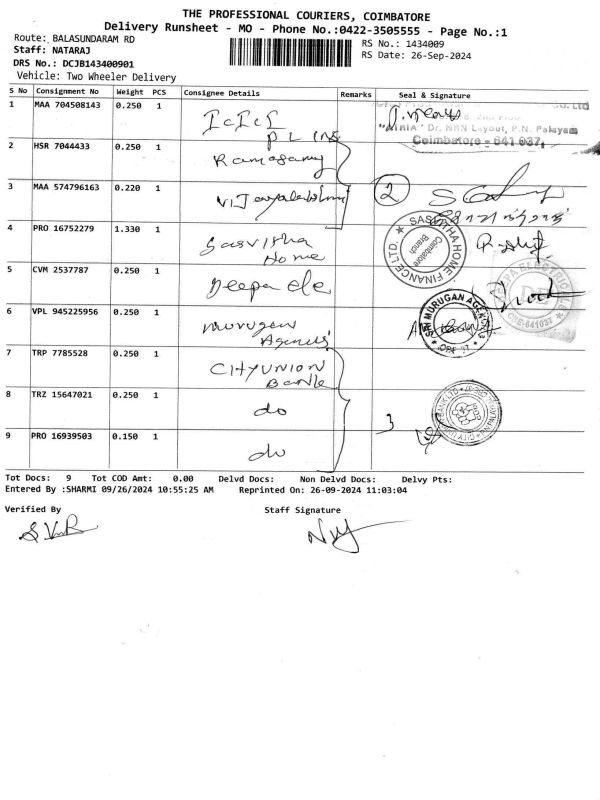 THE PROFESSIONAL COURIERS, COIMBATORE
Delivery Runsheet - MO - Phone No.:0422-3505555 - Page No.:1
Route: BALASUNDARAM RD
RS No.: 1434009
Staff: NATARAJ
RS Date: 26-Sep-2024
DRS No.: DCJB143400901
Vehicle: Two Wheeler Delivery
S No Consignment No Weight PCS Consignee Details Remarks Seal & Signature
1 MAA 704508143 0.250 1 ICICI
PL ins
Co. Ltd
"ATHIA" Dr. NRN Layout, P.N. Palayam
Coimbatore - 641 037.
2 HSR 7044433 0.250 1 Ramasamy
3 MAA 574796163 0.220 1 Vijayalakshmi 2
4 PRO 16752279 1.330 1 Sasvitha
Home
SASVITHA HOME FINANCE LTD.
Coimbatore
Branch
5 CVM 2537787 0.250 1 Deepa ele
DE
CBE-641037
6 VPL 945225956 0.250 1 murugan
Agencies
SRI MURUGAN AGENCIES
7 TRP 7785528 0.250 1 CITYUNION
Bank
8 TRZ 15647021 0.250 1 do 3
9 PRO 16939503 0.150 1 do
Tot Docs: 9 Tot COD Amt: 0.00 Delvd Docs: Non Delvd Docs: Delvy Pts:
Entered By :SHARMI 09/26/2024 10:55:25 AM Reprinted On: 26-09-2024 11:03:04
Verified By Staff Signature